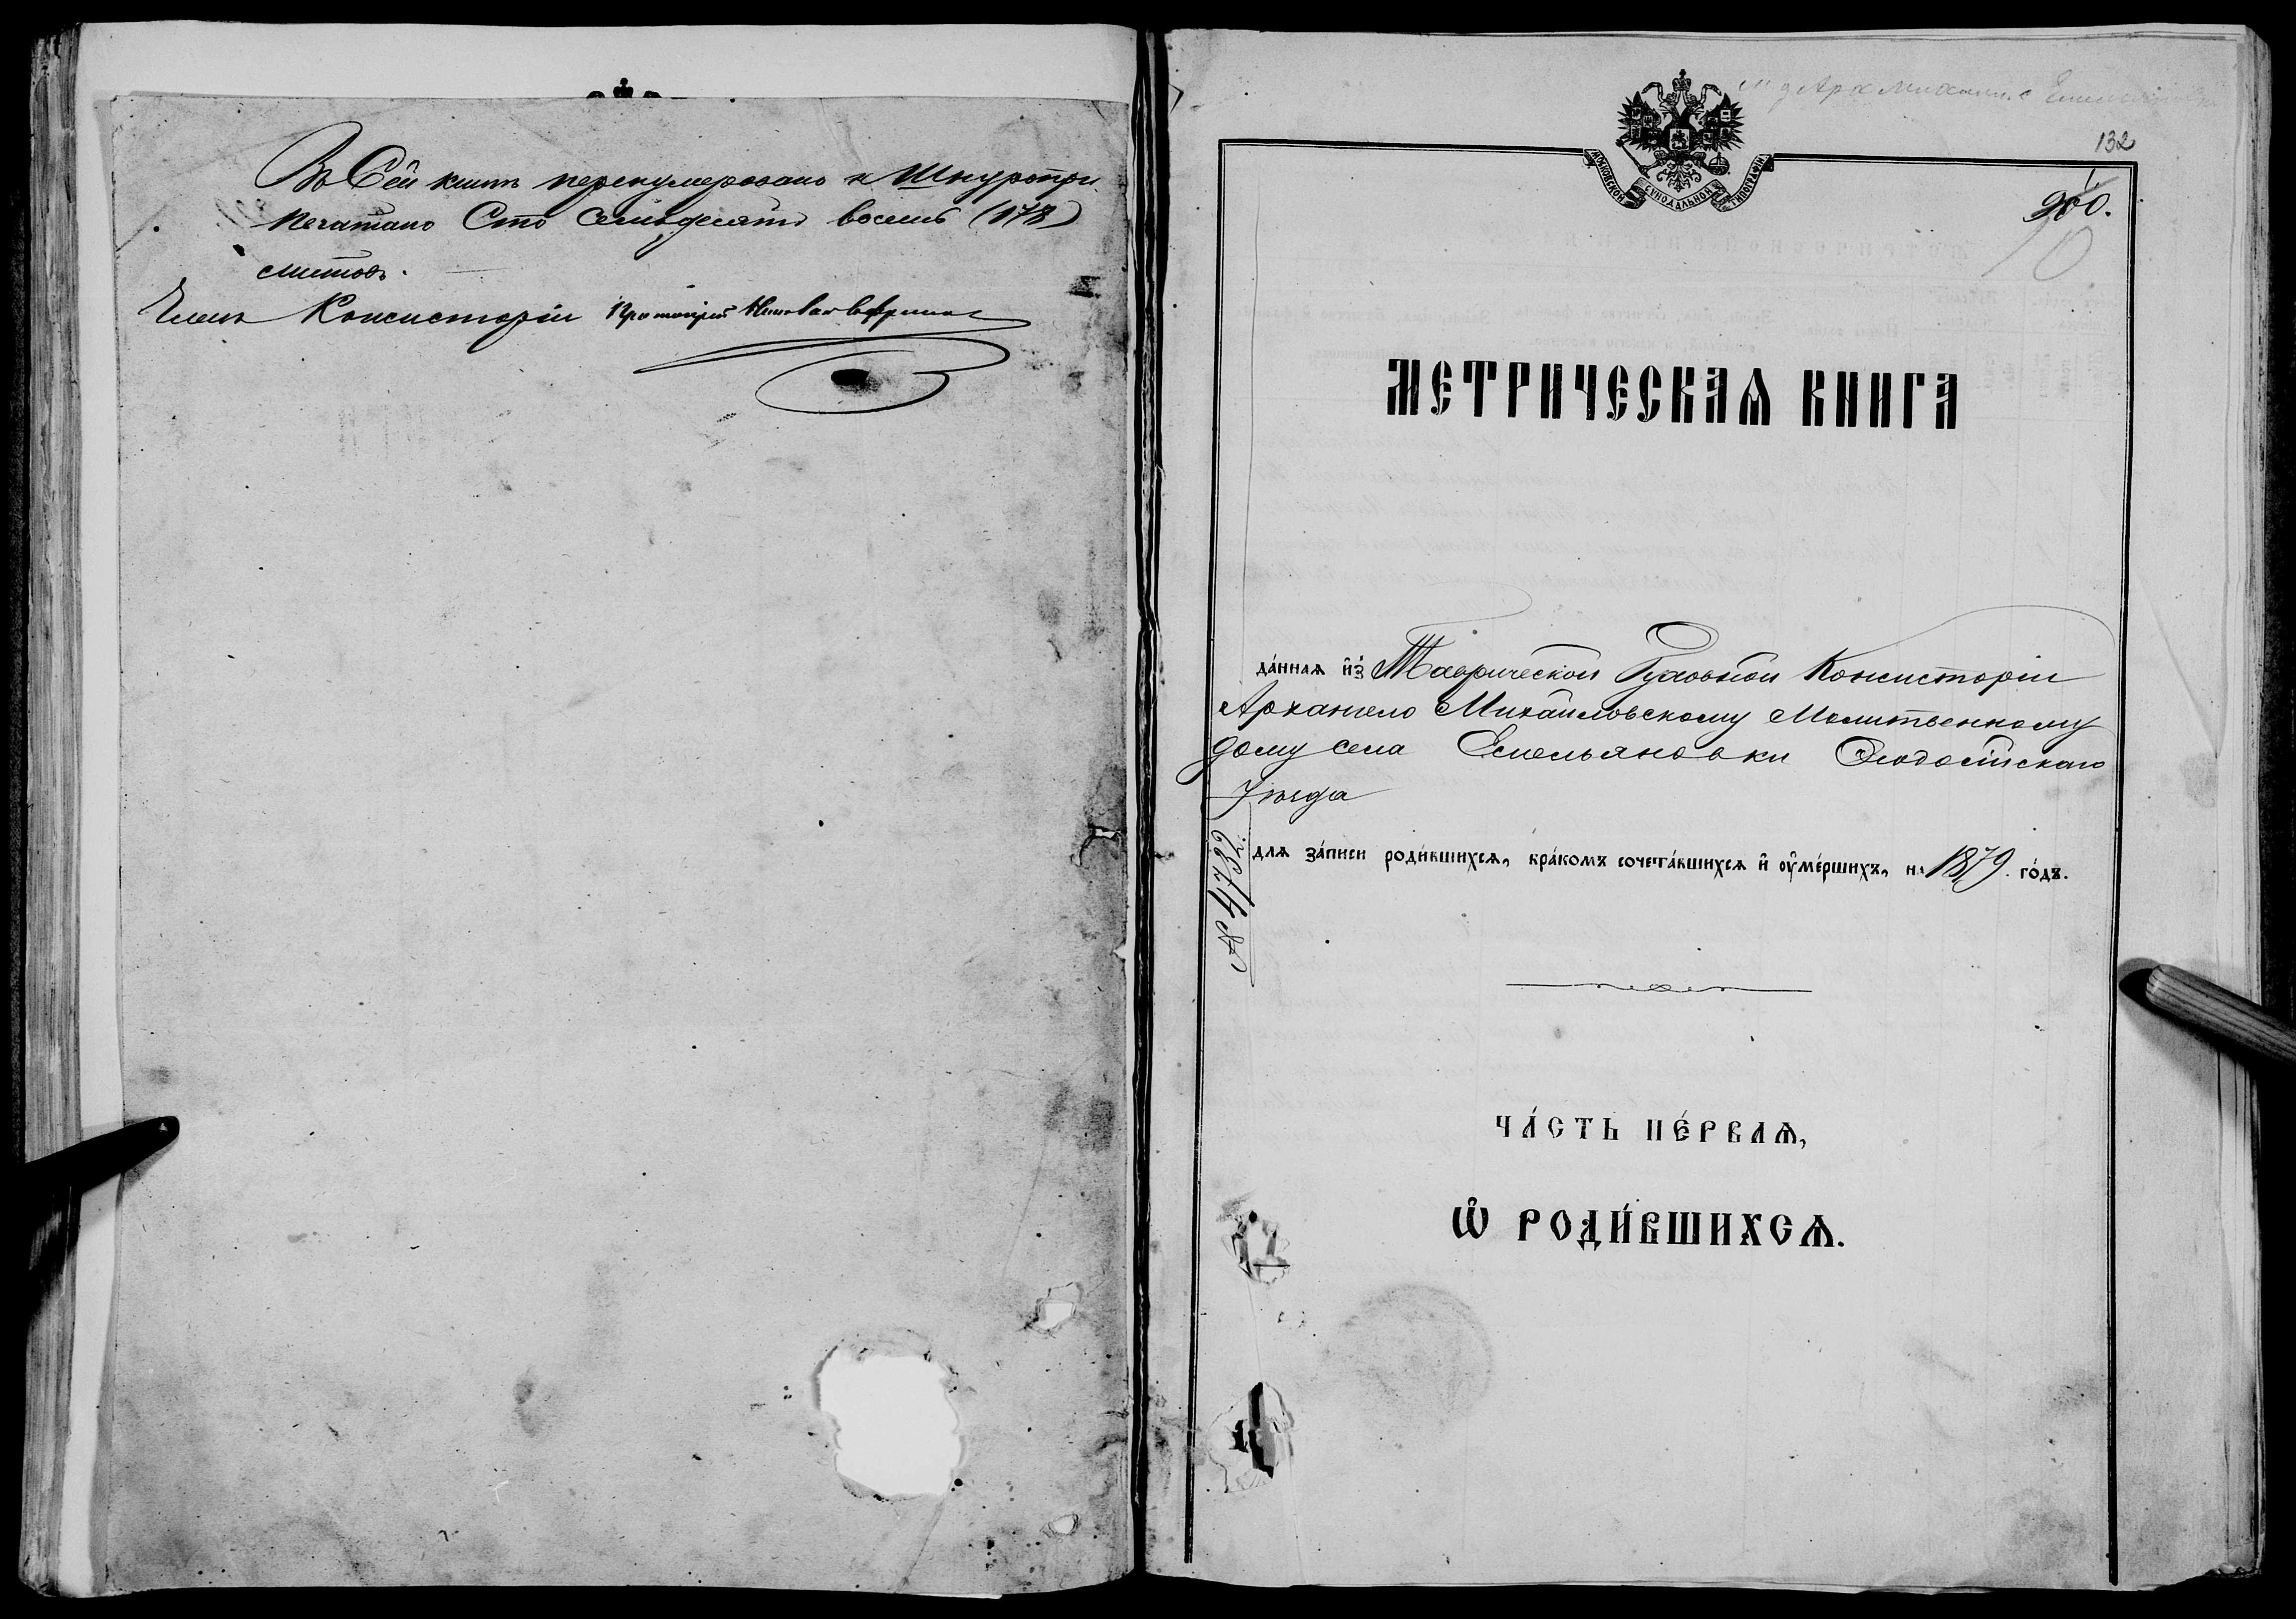 Въ Сей книгѣ перенумеровано и Шнуропри
печатано Сто Семьдесятъ восемь (178)
листовъ.
Членъ Консисторіи Протоіерей
132
МОСКОВСКОЙ СУНОДАЛЬНОЙ ТИПОГРАФІИ
МЕТРИЧЕСКАѦ КНИГА
да́ннаѧ и҆з̾ Таврической Духовной Консисторіи
Архангело Михайловскому Молитвенному
дому села Емельяновки Ѳеодосійскаго
Уѣзда
длѧ за́писи роди́вшихсѧ, бра́комъ сочета́вшихсѧ и҆ ᲂу҆ме́ршихъ, на 1879 го́дъ.
ЧА́СТЬ ПЕ́РВАѦ,
Ѡ҆ РОДИ́ВШИХСѦ.